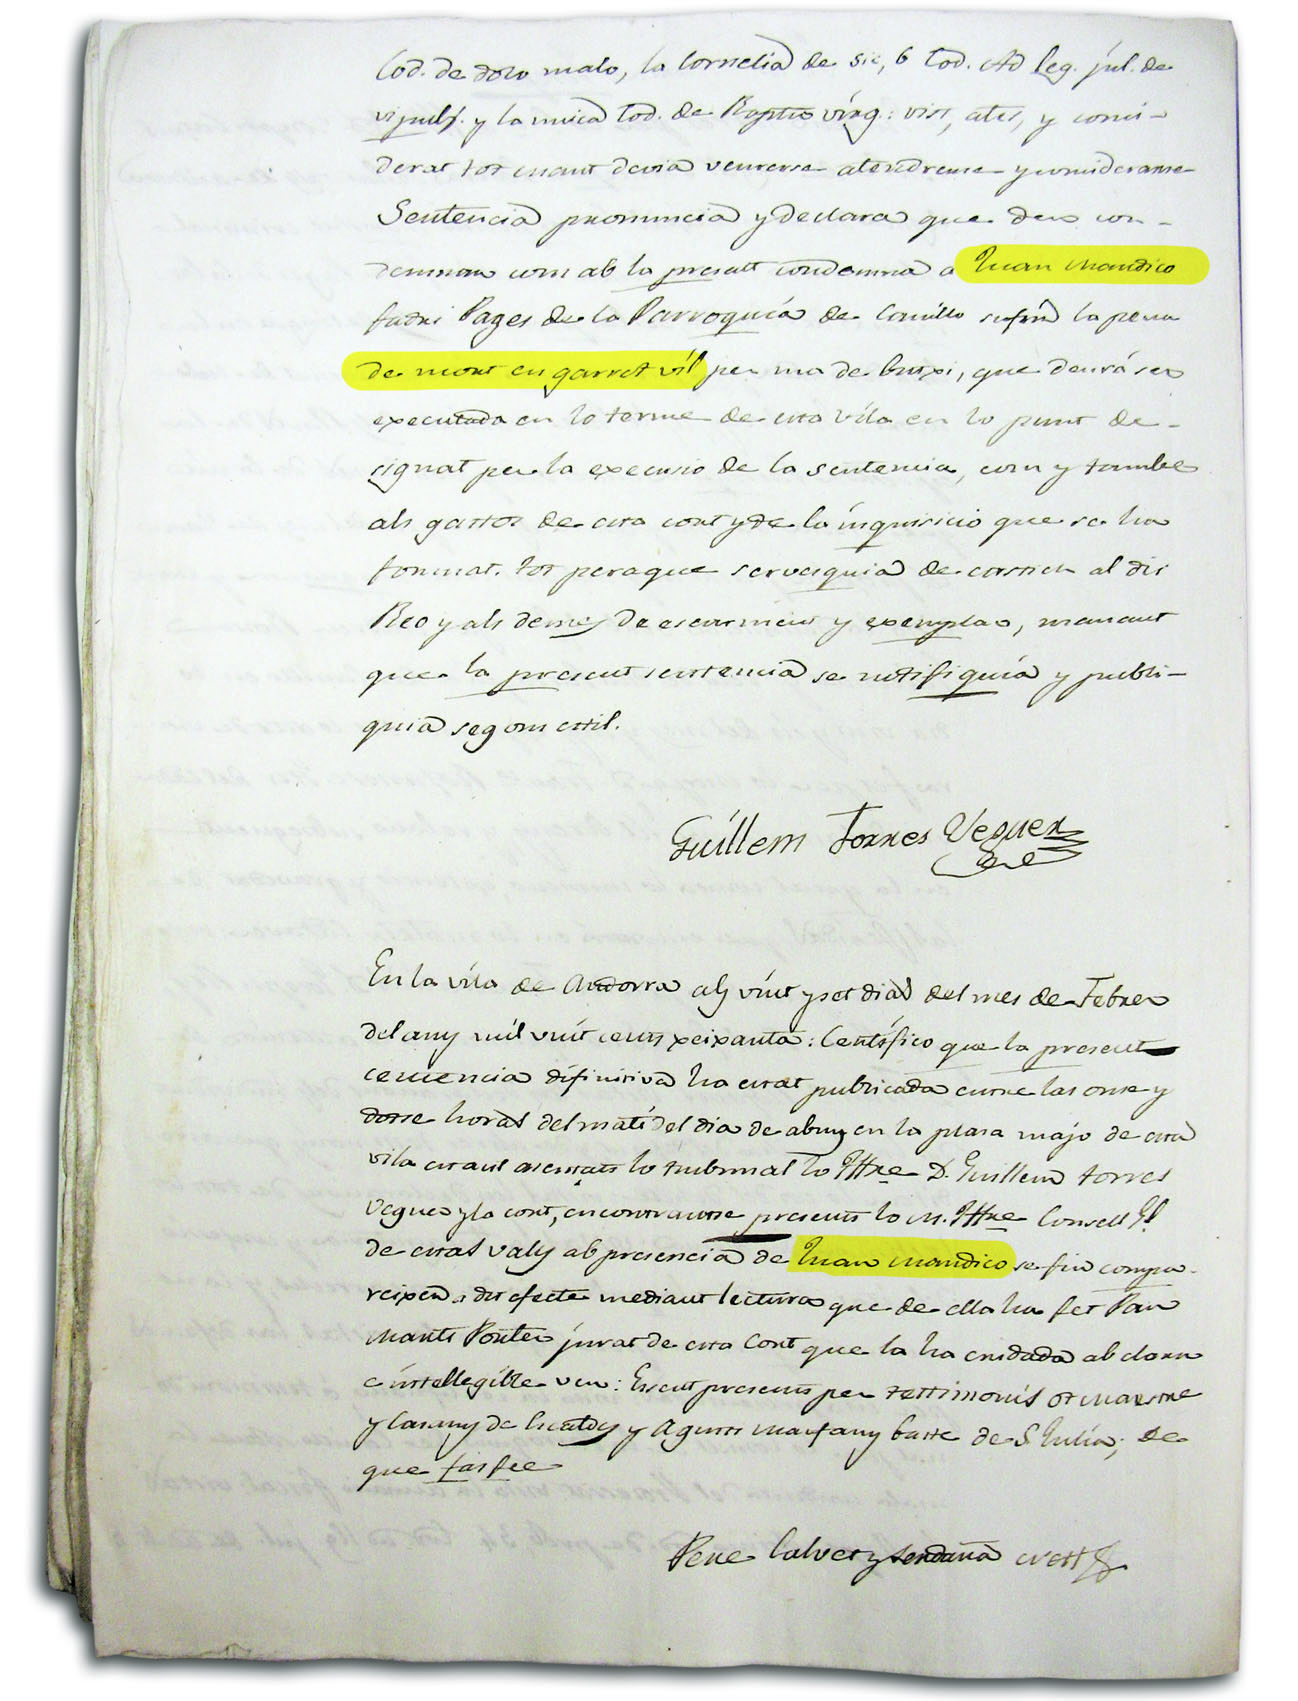 Cod. de dolo malo, la Cornelia de sic, 6 Cod. Ad Leg. jul. de
y la unica Cod. de Raptus virg.: vist, ates, y consi-
derat tot quant devia veurerse atendrerse y considerarse
Sentencia pronuncia y declara que deu con-
demnar com ab la present condemna a Juan Mandico
fadri Pages de la Parroquia de Canillo sufrir la pena
de mort en garrot vil per ma de butxi, que deurá ser
executada en lo terme de esta vila en lo punt de-
signat per la execusio de la sentencia, com y tambe
als gastos de esta cort y de la inquisicio que se ha
format. tot peraque servesquia de castich al dit
Reo y als demes de escarmeus y exemplar, manant
que la present sentencia se notifiquia y publi-
quia segons estil.
Guillem Torres Veguer
En la vila de Andorra als vint y set dias del mes de Febrer
del any mil vuit cents xeixanta: Certifico que la present
centencia difinitiva ha estat publicada entre las onse y
dotse horas del mati del dia de abuy en la plasa majo de esta
vila estant asentats lo tribunal lo Iltre D. Guillem torres
Veguer y la cort, encontrantse presents lo M. Iltre Consell Gl
de estas valls ab presencia de Juan Mandico se feu compa-
reixer a dit efecte mediant lectura que de ella ha fet Pau
Marti Porter jurat de esta Cort que la ha cridada ab clara
e intellegible veu: Essent presents per testimonis
y Casany de Escaldes y Agusti Marfany batlle de S. Julia; de
que fas fee
Pere Calvet y Serdaña